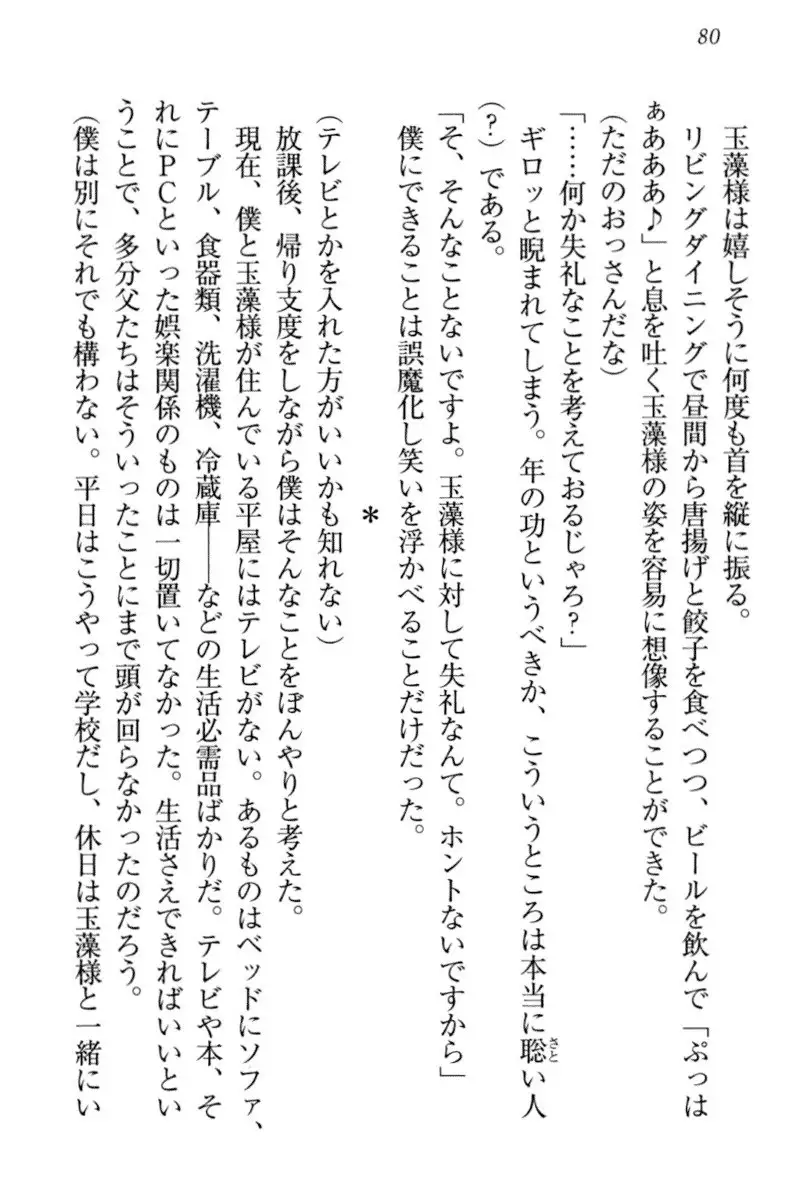 80
玉藻様は嬉しそうに何度も首を縦に振る。
リビングダイニングで昼間から唐揚げと餃子を食べつつ、ビールを飲んで「ぷっは
ぁあああ♪」と息を吐く玉藻様の姿を容易に想像することができた。
(ただのおっさんだな)
「……何か失礼なことを考えておるじゃろ?」
ギロッと睨まれてしまう。年の功というべきか、こういうところは本当に聡い人
(?)である。
「そ、そんなことないですよ。玉藻様に対して失礼なんて。ホントないですから」
僕にできることは誤魔化し笑いを浮かべることだけだった。
*
(テレビとかを入れた方がいいかも知れない)
放課後、帰り支度をしながら僕はそんなことをぼんやりと考えた。
現在、僕と玉藻様が住んでいる平屋にはテレビがない。あるものはベッドにソファ、
テーブル、食器類、洗濯機、冷蔵庫――などの生活必需品ばかりだ。テレビや本、そ
れにPCといった娯楽関係のものは一切置いてなかった。生活さえできればいいとい
うことで、多分父たちはそういったことにまで頭が回らなかったのだろう。
(僕は別にそれでも構わない。平日はこうやって学校だし、休日は玉藻様と一緒にい
さと